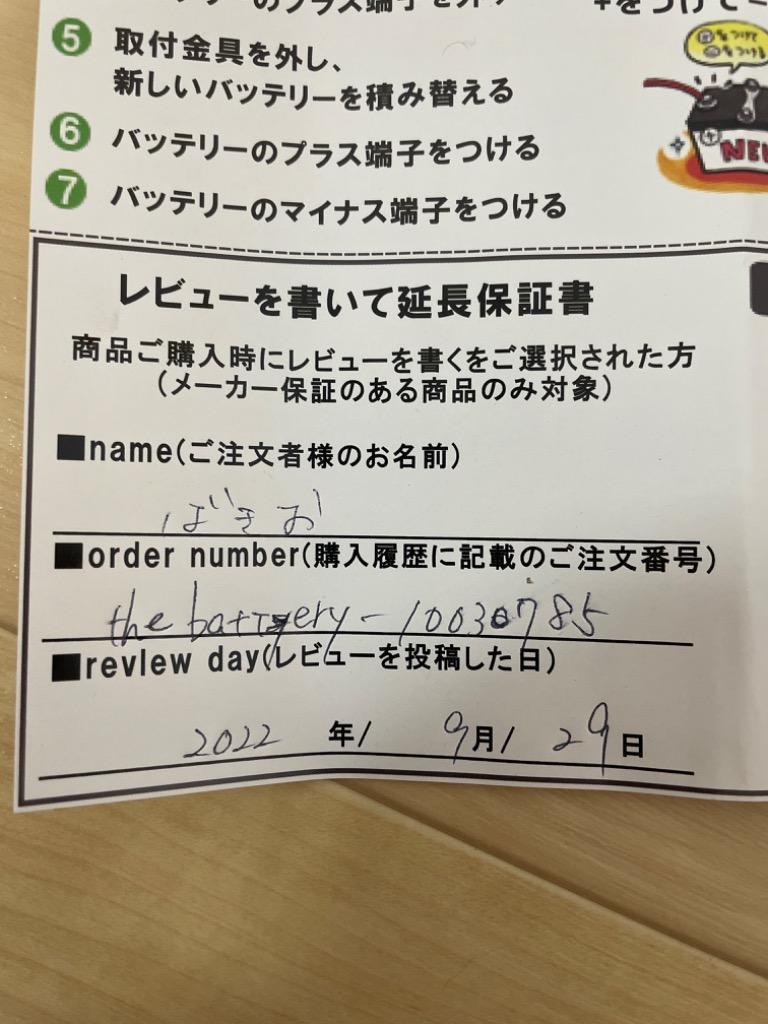 5 取付金具を外し、
新しいバッテリーを積み替える
6 バッテリーのプラス端子をつける
7 バッテリーのマイナス端子をつける
NEW
レビューを書いて延長保証書
商品ご購入時にレビューを書くをご選択された方
(メーカー保証のある商品のみ対象)
■name(ご注文者様のお名前)
ばきお
■order number(購入履歴に記載のご注文番号)
the battery-10030785
■revlew day(レビューを投稿した日)
2022 年/ 9月/ 29日